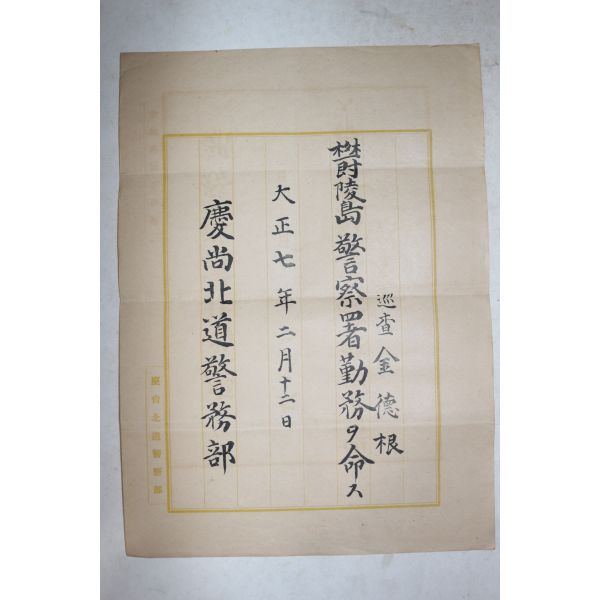 巡査 金德根
欝陵島警察署勤務ヲ命ス
大正七年二月十二日
慶尚北道警務部
慶尚北道警務部